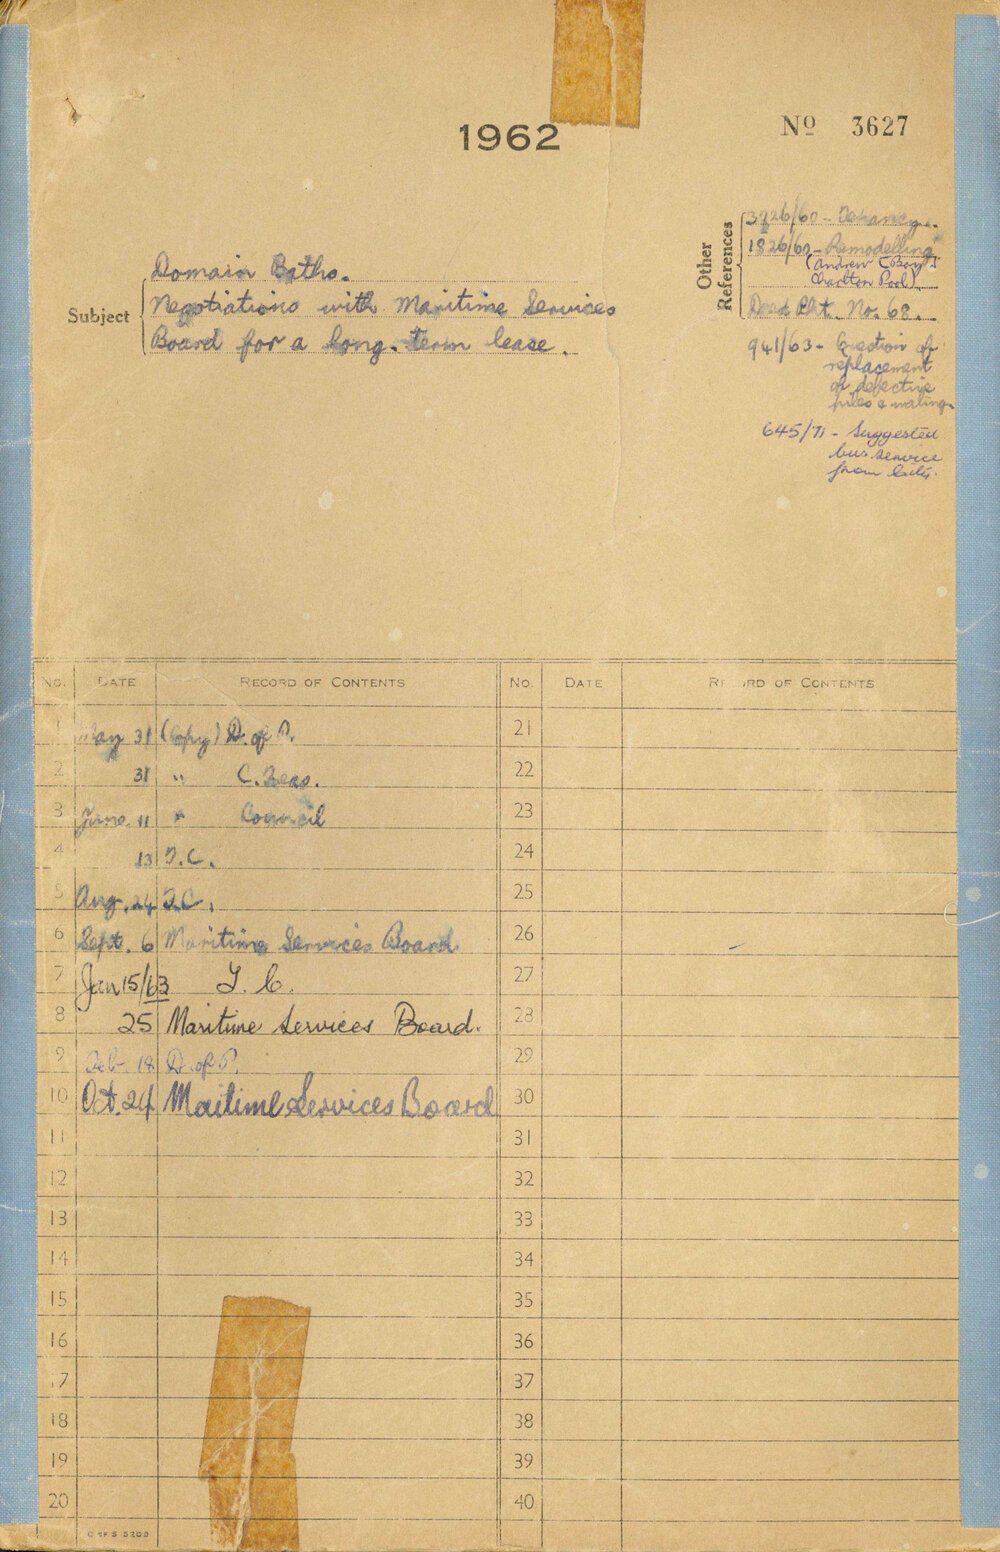 1962
Nº 3627
Subject
Domain Baths.
Negotiations with Maritime Services
Board for a long-term lease.
Other References
3926/60 - Tenancy.
1826/60 - Remodelling
(Andrew (Boy)
Charlton Pool)
Deed Pkt. No. 68.
941/63 - Question of
replacement
of defective
piles &
645/71 - Suggested
bus service
from City.
No. DATE RECORD OF CONTENTS No. DATE RECORD OF CONTENTS
1 May 31 (Copy) D. of P. 21
2 31 " C. Treas. 22
3 June 11 " Council 23
4 13 T.C. 24
5 Aug. 24 T.C. 25
6 Sept. 6 Maritime Services Board 26
7 Jan 15/63 T. C. 27
8 25 Maritime Services Board. 28
9 Feb. 18 D. of P. 29
10 Oct. 24 Maritime Services Board 30
11 31
12 32
13 33
14 34
15 35
16 36
17 37
18 38
19 39
20 40